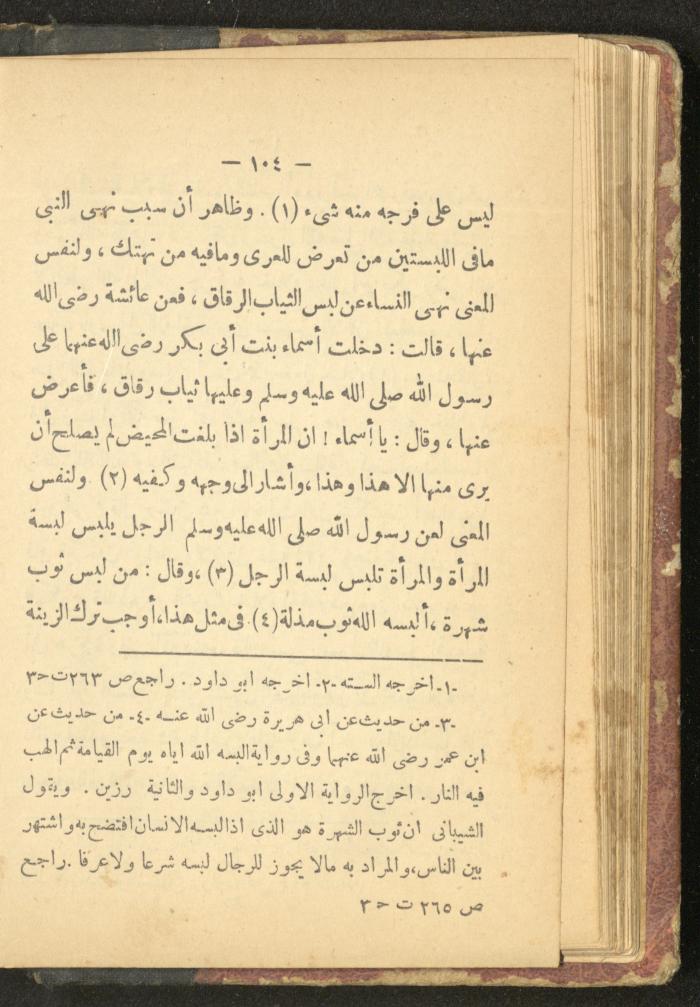 — ١٠٤ —
ليس على فرجه منه شىء (١) . وظاهر أن سبب نهى النبى
مافى اللبستين من تعرض للعرى ومافيه من تهتك ، ولنفس
المعنى نهى النساء عن لبس الثياب الرقاق ، فعن عائشة رضى الله
عنها ، قالت : دخلت أسماء بنت أبى بكر رضى الله عنهما على
رسول الله صلى الله عليه وسلم وعليها ثياب رقاق ، فأعرض
عنها ، وقال : يا أسماء ! ان المرأة اذا بلغت المحيض لم يصلح أن
يرى منها الا هذا وهذا ،وأشار الى وجهه وكفيه (٢) ولنفس
المعنى لعن رسول الله صلى الله عليه وسلم الرجل يلبس لبسة
المرأة والمرأة تلبس لبسة الرجل (٣) ،وقال : من لبس ثوب
شهرة ،ألبسه الله ثوب مذلة (٤) فى مثل هذا،أوجب ترك الزينة
-١- اخرجه الستة -٢- اخرجه ابو داود . راجع ص ٢٦٣ ت ح٣
-٣- من حديث عن ابى هريرة رضى الله عنه -٤- من حديث عن
ابن عمر رضى الله عنهما وفى رواية البسه الله اياه يوم القيامة ثم الهب
فيه النار . اخرج الرواية الاولى ابو داود والثانية رزين . ويقول
الشيبانى ان ثوب الشهرة هو الذى اذا لبسه الانسان افتضح به واشتهر
بين الناس،والمراد به مالا يجوز للرجال لبسه شرعا ولا عرفا .راجع
ص ٢٦٥ ت ح ٣